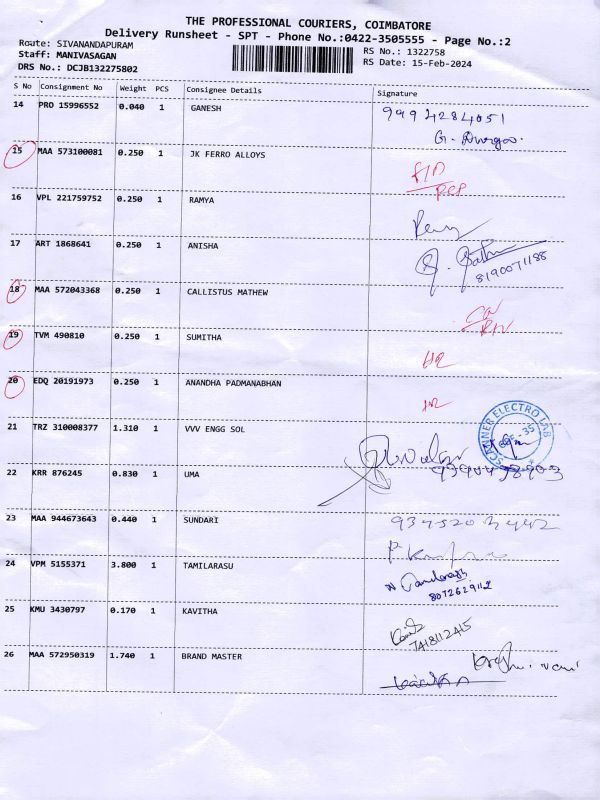 THE PROFESSIONAL COURIERS, COIMBATORE
Delivery Runsheet - SPT - Phone No.:0422-3505555 - Page No.:2
Route: SIVANANDAPURAM
Staff: MANIVASAGAN
DRS No.: DCJB132275802
RS No.: 1322758
RS Date: 15-Feb-2024
S No Consignment No Weight PCS Consignee Details Signature
14 PRO 15996552 0.040 1 GANESH 9994284051
15 MAA 573100081 0.250 1 JK FERRO ALLOYS
16 VPL 221759752 0.250 1 RAMYA
17 ART 1868641 0.250 1 ANISHA
8190071188
18 MAA 572043368 0.250 1 CALLISTUS MATHEW
19 TVM 490810 0.250 1 SUMITHA
20 EDQ 20191973 0.250 1 ANANDHA PADMANABHAN
SCANNER ELECTRO LAB
21 TRZ 310008377 1.310 1 VVV ENGG SOL
22 KRR 876245 0.830 1 UMA
23 MAA 944673643 0.440 1 SUNDARI
24 VPM 5155371 3.800 1 TAMILARASU
8072629112
25 KMU 3430797 0.170 1 KAVITHA
26 MAA 572950319 1.740 1 BRAND MASTER